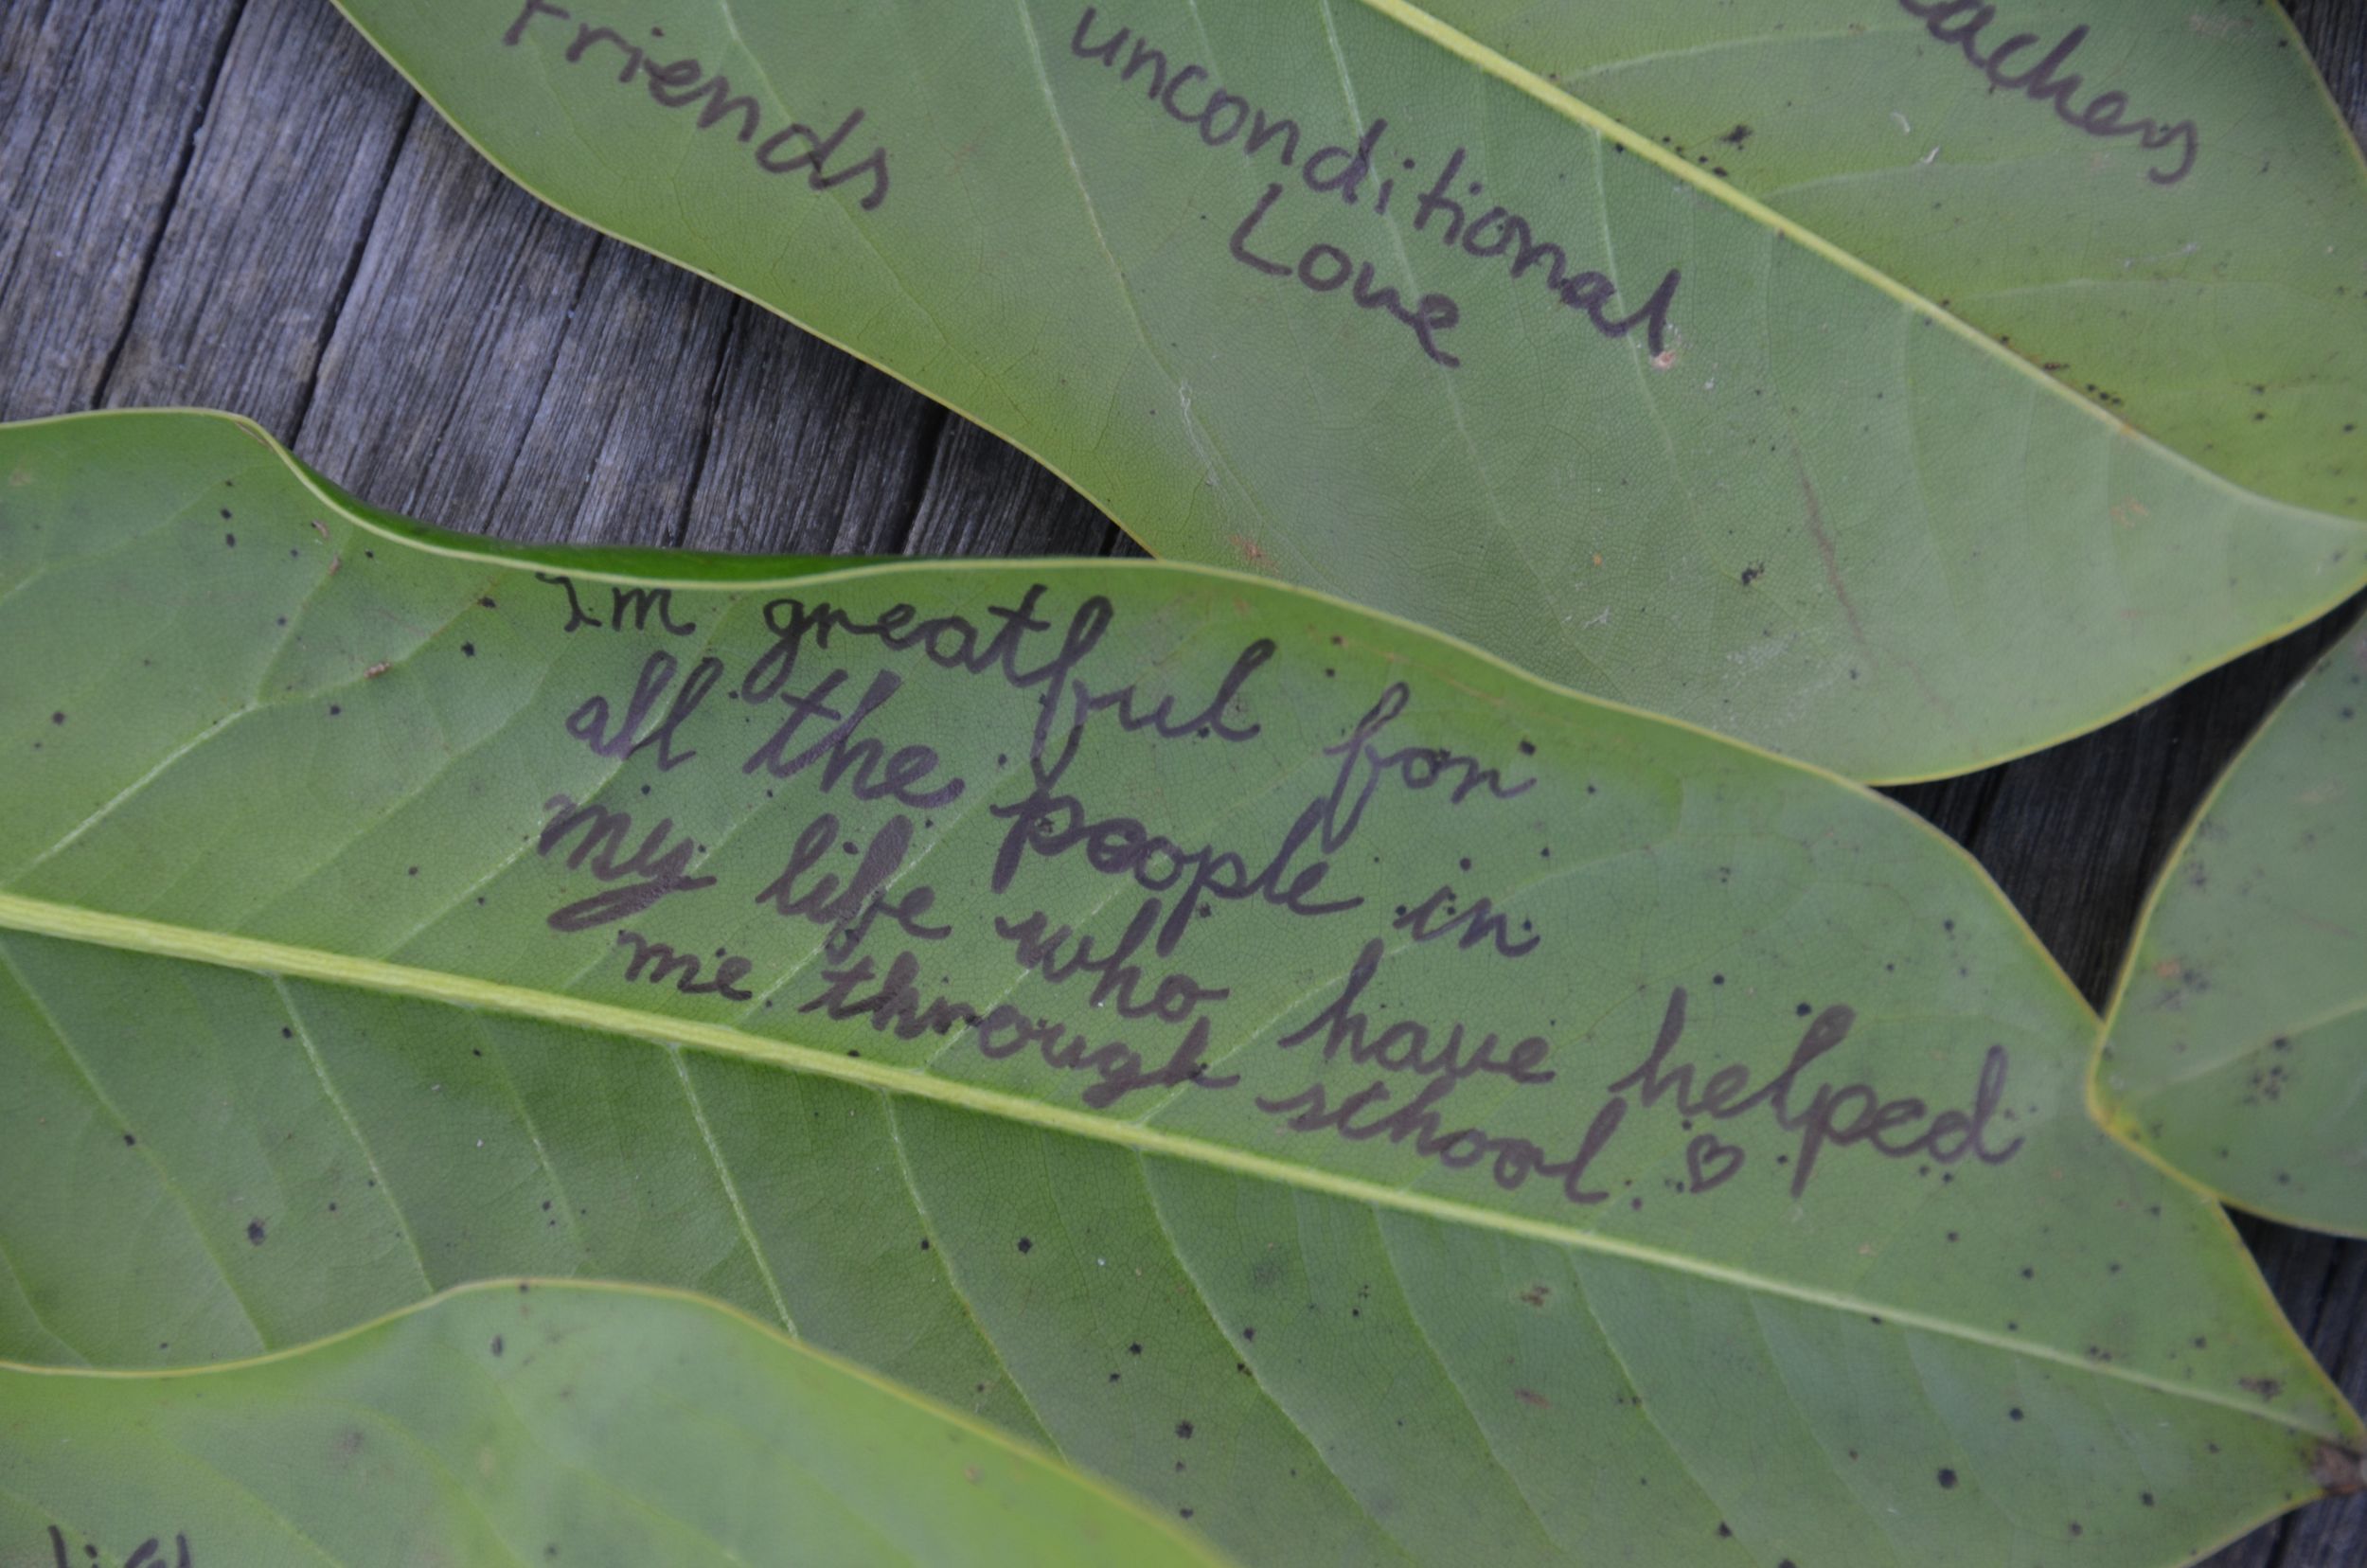 Friends
unconditional
Love
achers
Im greatful for
all the people in
my life who have helped
me through school. ♡